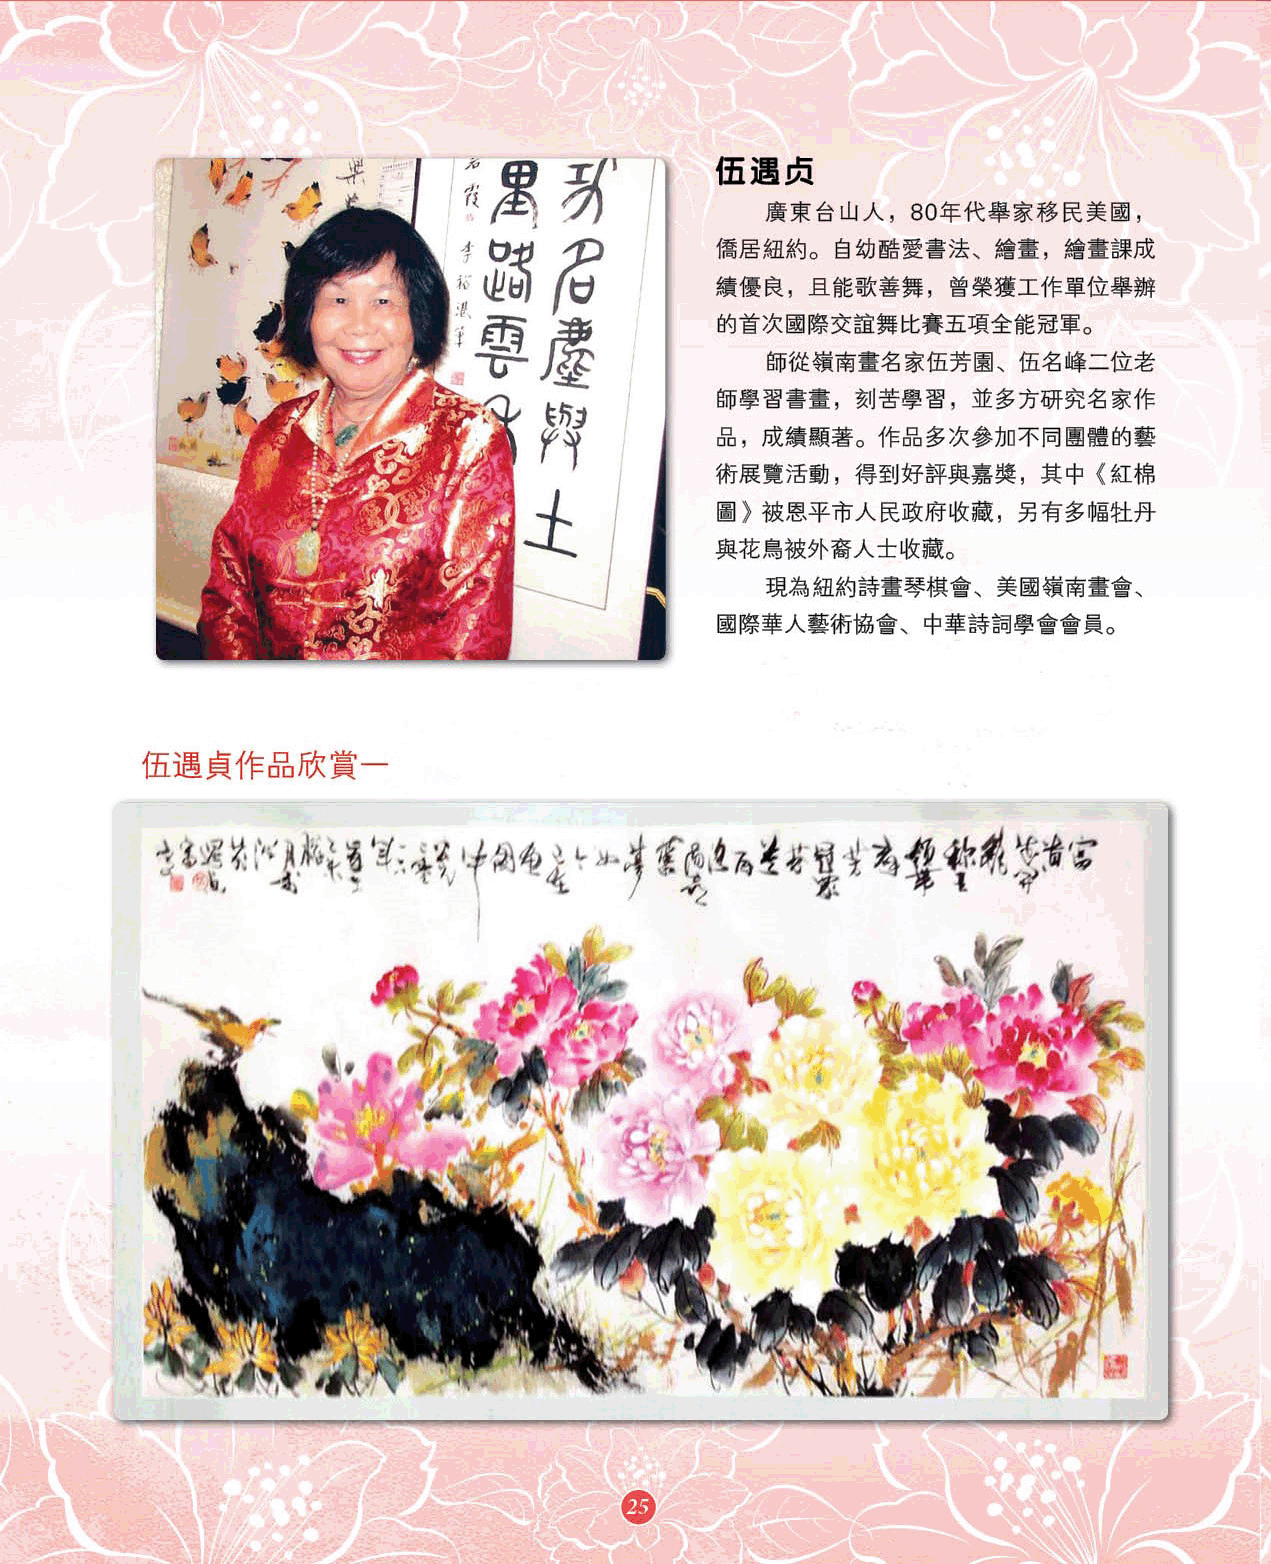 伍遇贞
廣東台山人，80年代舉家移民美國，
僑居紐約。自幼酷愛書法、繪畫，繪畫課成
績優良，且能歌善舞，曾榮獲工作單位舉辦
的首次國際交誼舞比賽五項全能冠軍。
師從嶺南畫名家伍芳園、伍名峰二位老
師學習書畫，刻苦學習，並多方研究名家作
品，成績顯著。作品多次參加不同團體的藝
術展覽活動，得到好評與嘉獎，其中《紅棉
圖》被恩平市人民政府收藏，另有多幅牡丹
與花鳥被外裔人士收藏。
現為紐約詩畫琴棋會、美國嶺南畫會、
國際華人藝術協會、中華詩詞學會會員。
功名塵與土
里路雲
伍遇貞作品欣賞一
25